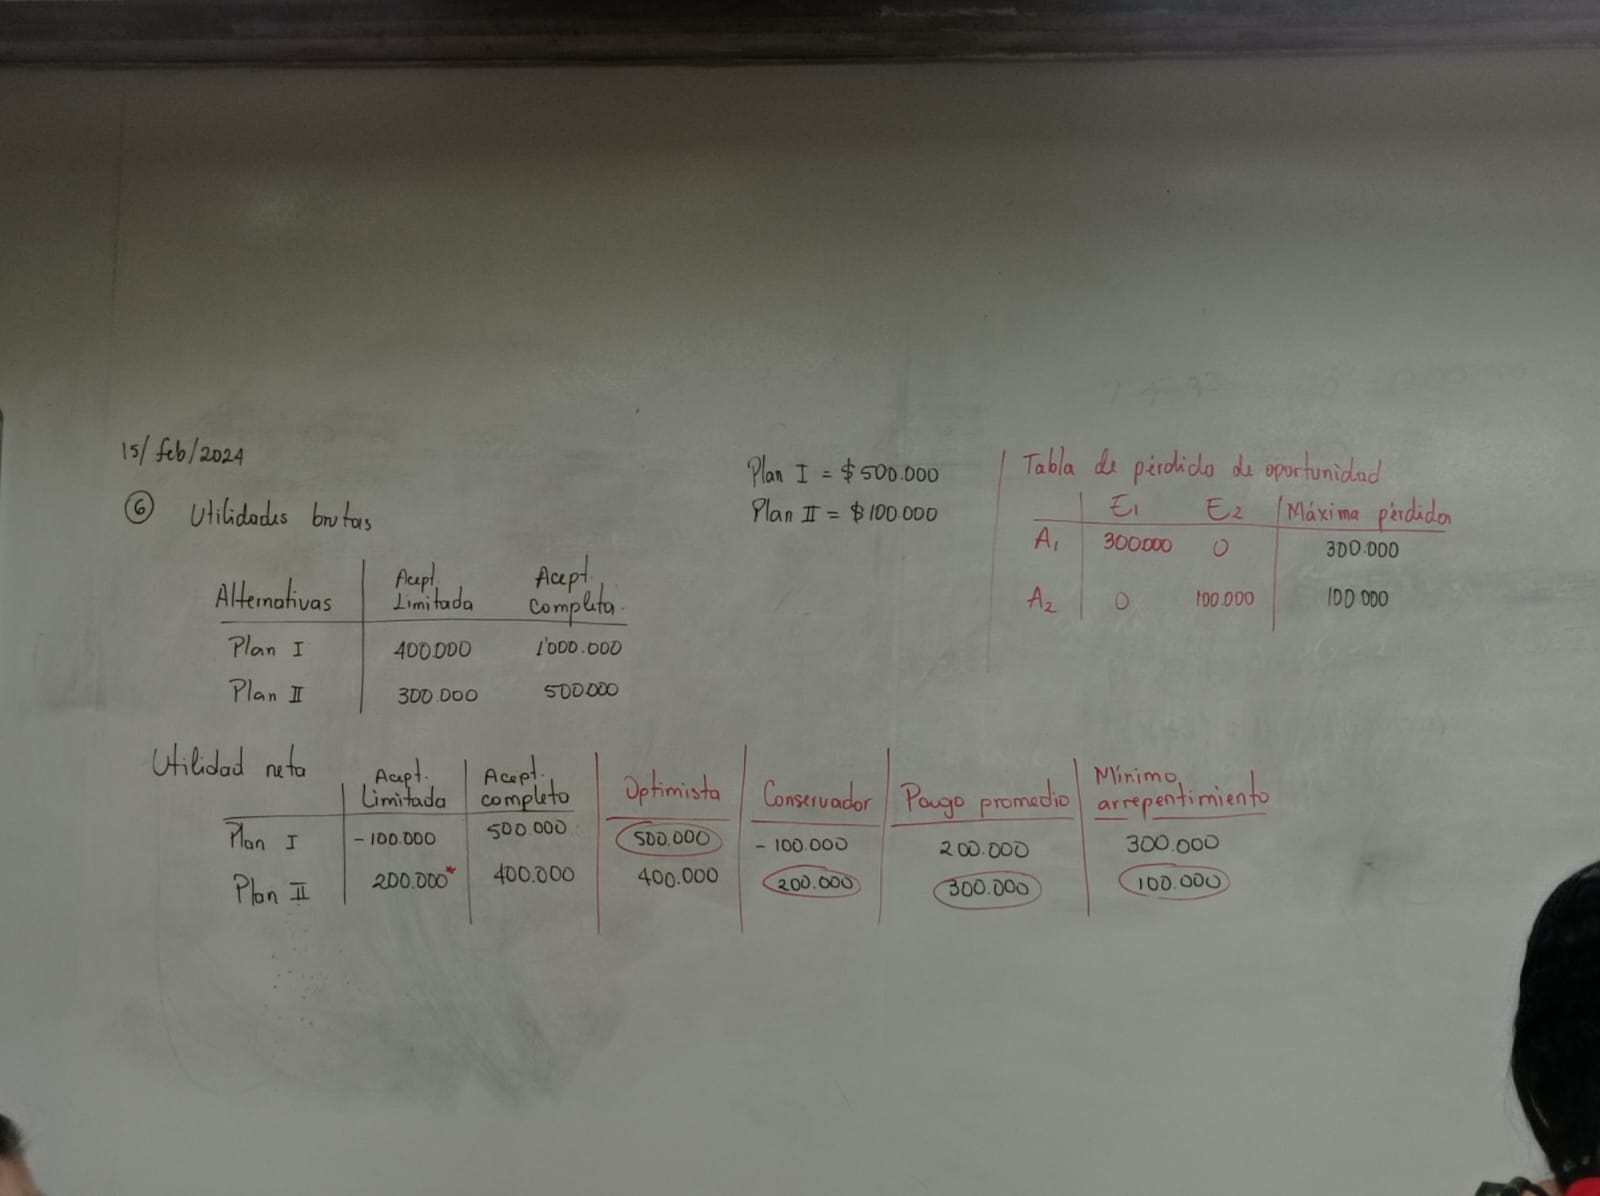 15/feb/2024
⑥ Utilidades brutas
Alternativas Acept. Limitada Acept. completa.
Plan I 400.000 1'000.000
Plan II 300.000 500.000
Plan I = $500.000
Plan II = $100.000
Tabla de pérdida de oportunidad
E1 E2 Máxima pérdida
A1 300.000 0 300.000
A2 0 100.000 100.000
Utilidad neta
Acept. Limitada Acept. completo Optimista Conservador Pago promedio Mínimo arrepentimiento
Plan I -100.000 500.000 500.000 -100.000 200.000 300.000
Plan II 200.000* 400.000 400.000 200.000 300.000 100.000